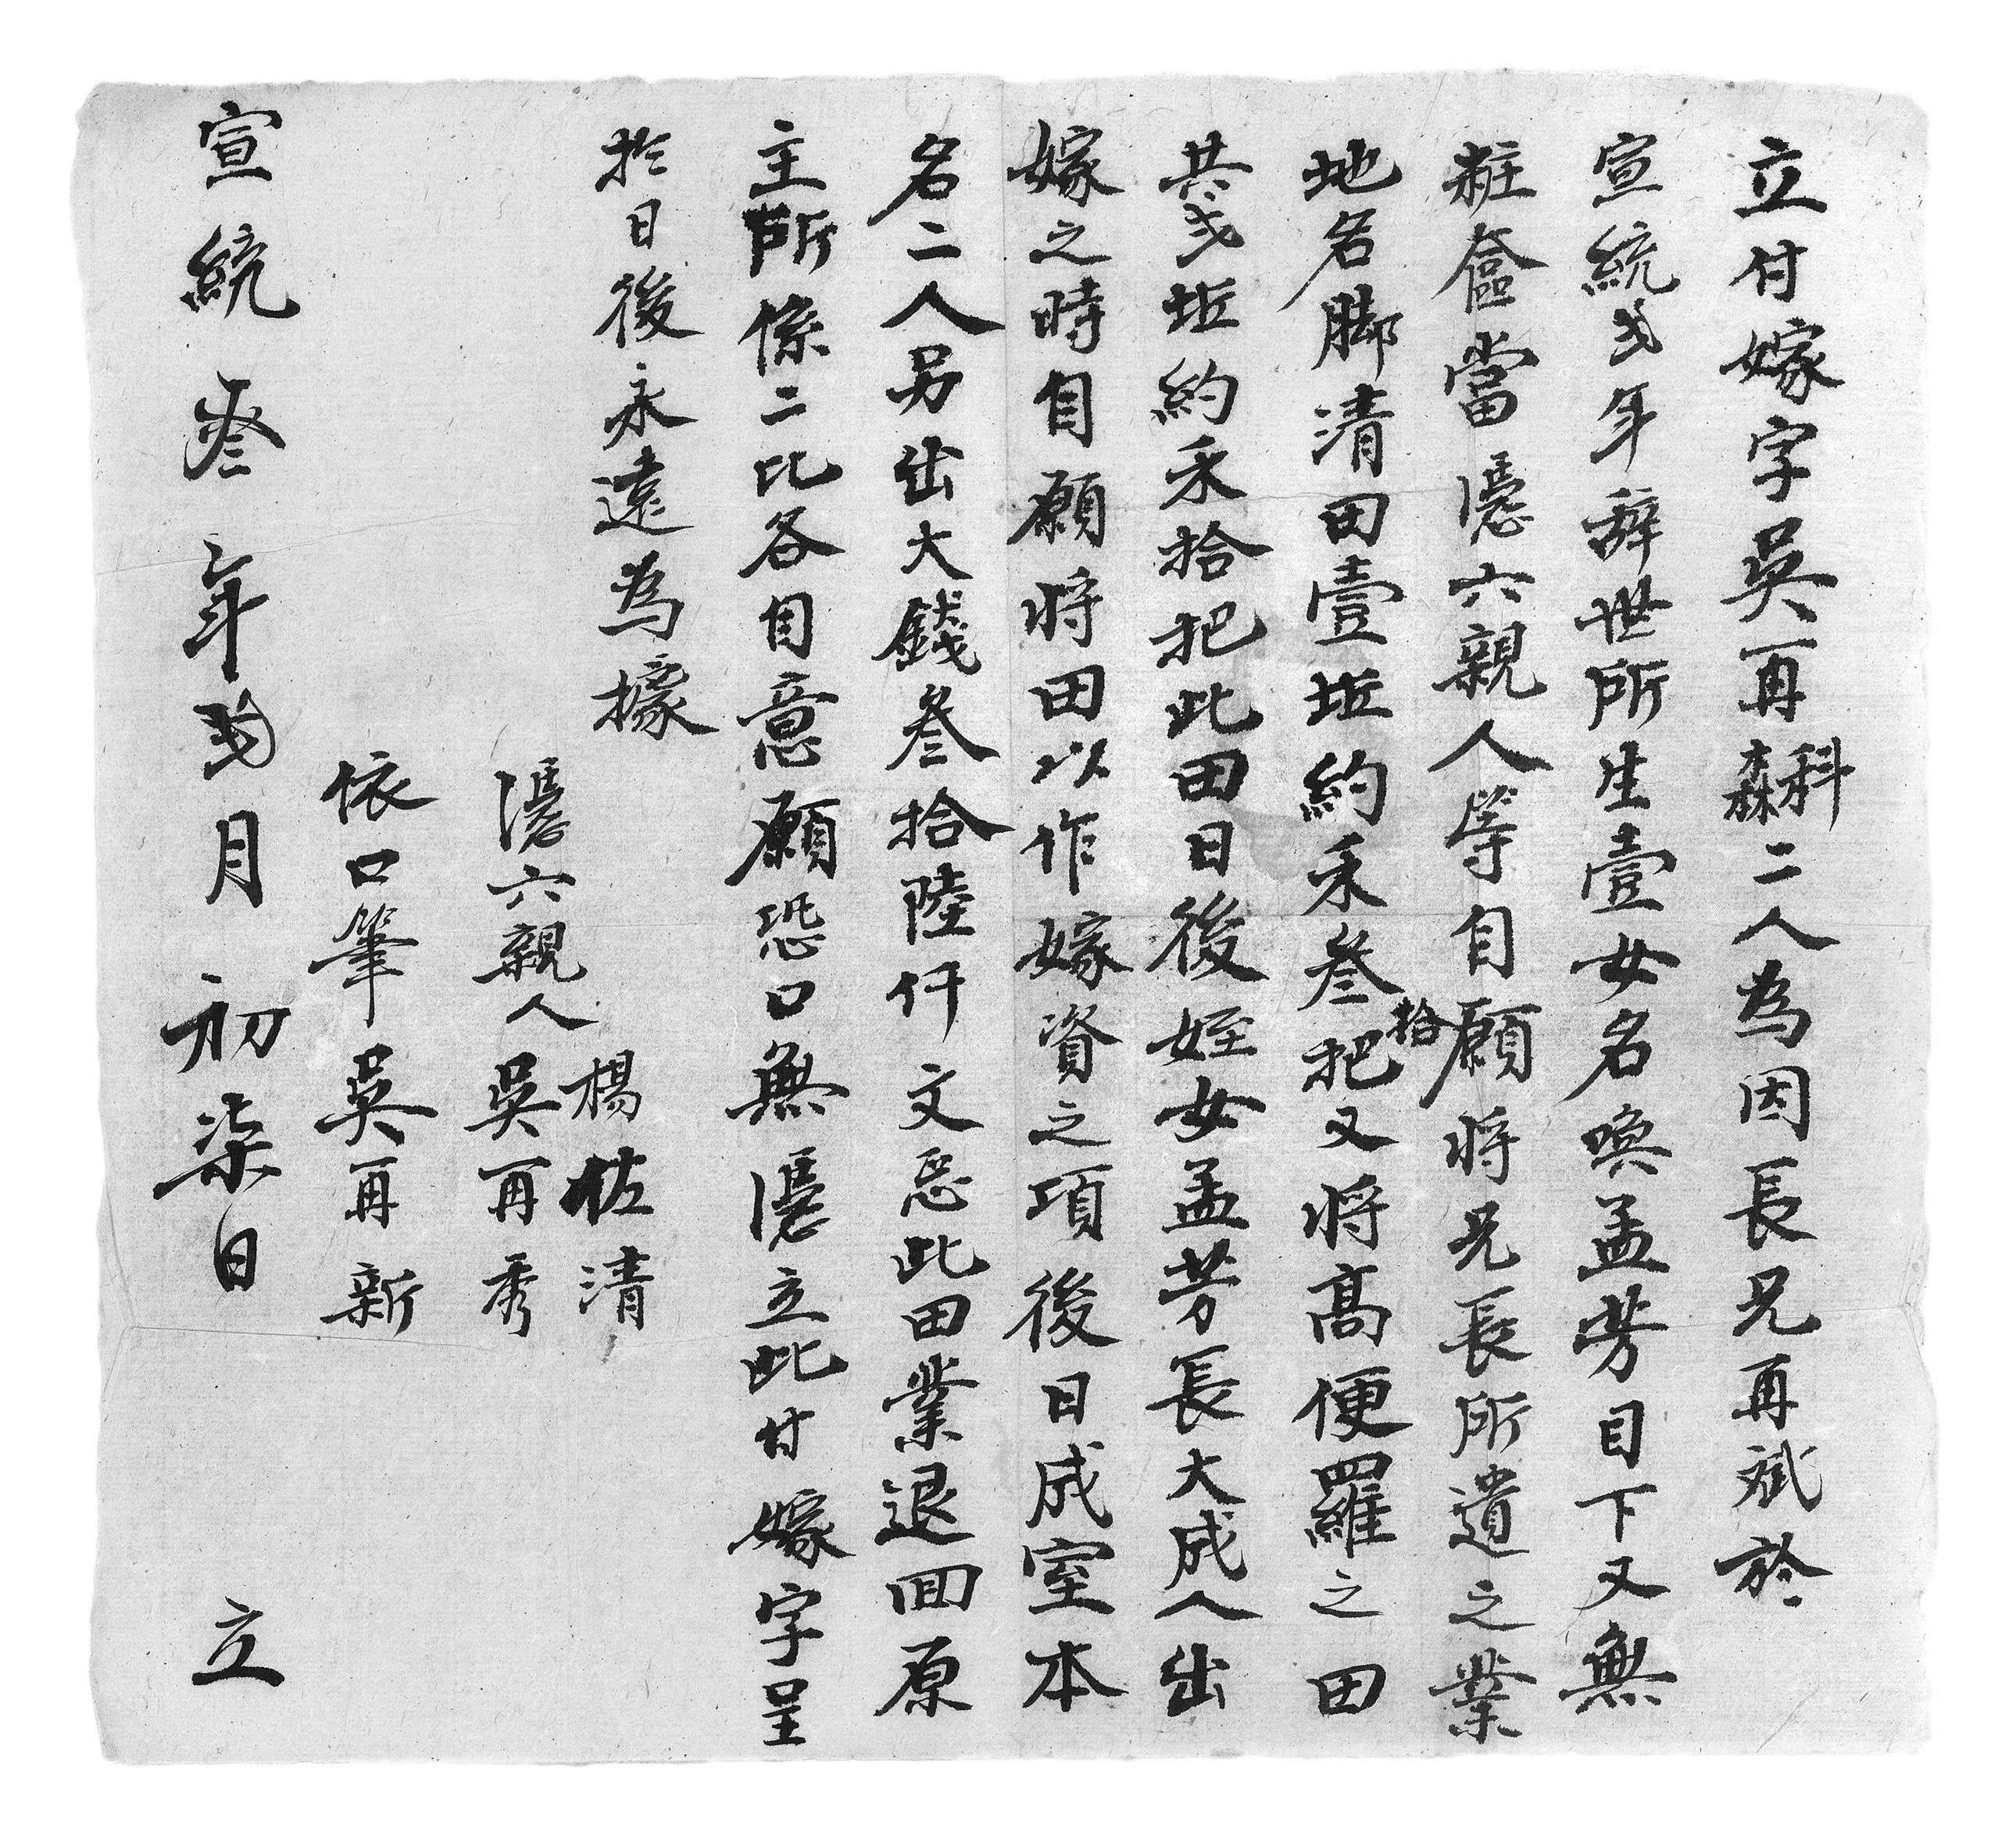 立付嫁字吳再科森二人為因長兄再斌於
宣統弍年辞世所生壹女名喚孟芳目下又無
粧奩當憑六親人等自願將兄長所遺之業
地名脚清田壹坵約禾叁拾把又將高便羅之田
共弍坵約禾拾把此田日後姪女孟芳長大成人出
嫁之時自願將田以作嫁資之項後日成室本
名二人另出大錢叁拾陸仟文恁此田業退回原
主所係二比各自意願恐口無憑立此付嫁字呈
於日後永遠為據
楊佐清
憑六親人吳再秀
依口筆吳再新
宣統叁年 月初柒日 立